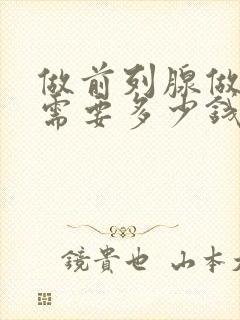 做前列腺做
需要多少钱
鏡貴也 山本